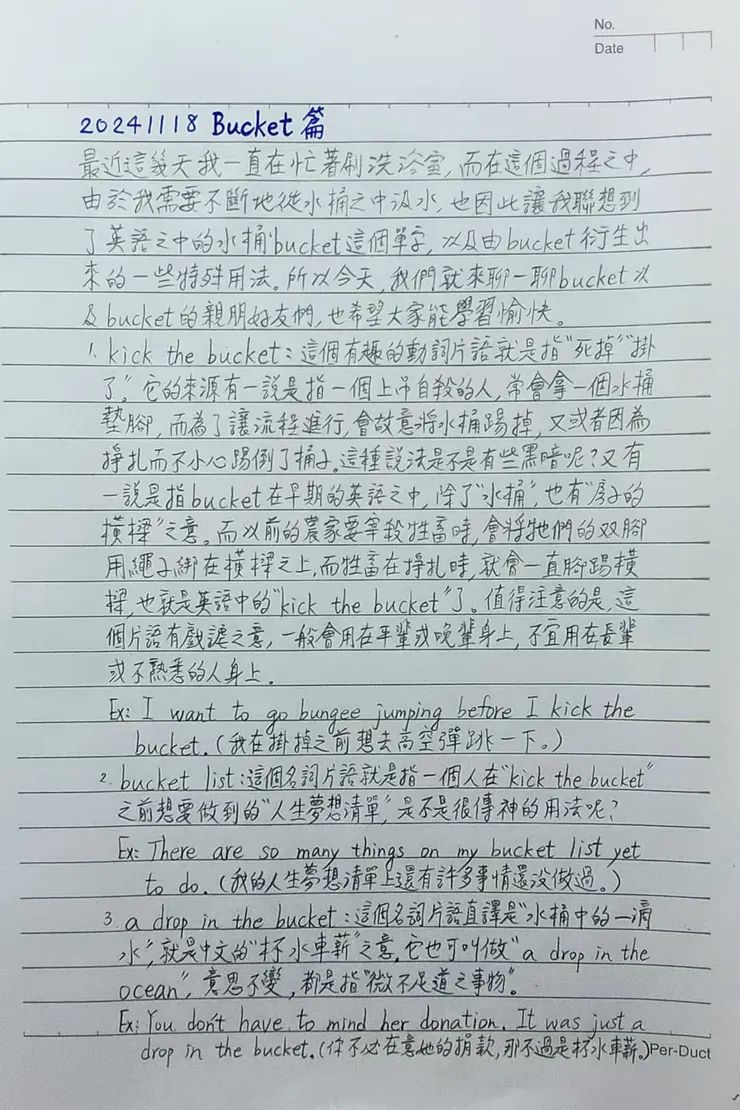 No.
Date
20241118 Bucket篇
最近這幾天我一直在忙著刷洗浴室,而在這個過程之中,
由於我需要不斷地從水桶之中汲水,也因此讓我聯想到
了英語之中的水桶"bucket這個單字,以及由bucket衍生出
來的一些特殊用法。所以今天,我們就來聊一聊bucket以
及bucket的親朋好友們,也希望大家能學習愉快。
1. kick the bucket:這個有趣的動詞片語就是指"死掉""掛
了"。它的來源有一說是指一個上吊自殺的人,常會拿一個水桶
墊腳,而為了讓流程進行,會故意將水桶踢掉,又或者因為
掙扎而不小心踢倒了桶子。這種說法是不是有些黑暗呢?又有
一說是指bucket在早期的英語之中,除了"水桶",也有"房子的
橫樑"之意。而以前的農家要宰殺牲畜時,會將牠們的双腳
用繩子綁在橫樑之上,而牲畜在掙扎時,就會一直腳踢橫
樑,也就是英語中的"kick the bucket"了。值得注意的是,這
個片語有戲謔之意,一般會用在平輩或晚輩身上,不宜用在長輩
或不熟悉的人身上.
Ex: I want to go bungee jumping before I kick the
bucket.(我在掛掉之前想去高空彈跳一下。)
2. bucket list:這個名詞片語就是指一個人在"kick the bucket"
之前想要做到的"人生夢想清單",是不是很傳神的用法呢?
Ex: There are so many things on my bucket list yet
to do.(我的人生夢想清單上還有許多事情還沒做過。)
3. a drop in the bucket:這個名詞片語直譯是"水桶中的一滴
水",就是中文的"杯水車薪"之意.它也可叫做"a drop in the
ocean",意思不變,都是指"微不足道之事物"。
Ex: You don't have to mind her donation. It was just a
drop in the bucket.(你不必在意她的捐款,那不過是杯水車薪。)Per-Duct